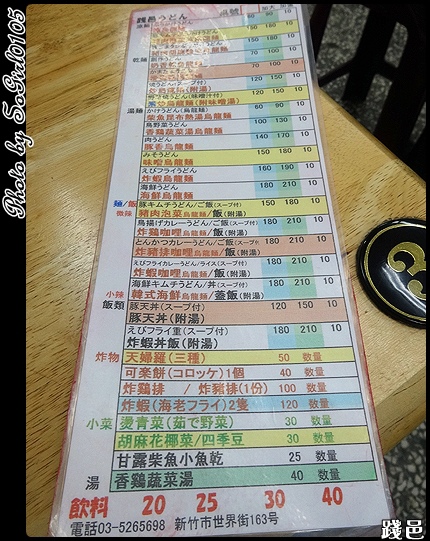 踐邑うどん 桌號
乾麵
味噌うどん(味噌汁付)
紫炒烏龍麵(附味噌湯) 150 180 10
湯麵 かけうどん(烏龍麵) 60 90 10
柴魚昆布熱湯烏龍麵
鳥野菜うどん 100 130 10
香雞蔬菜湯烏龍麵
肉うどん 140 170 10
豚香烏龍麵
みそうどん 150 180 10
味噌烏龍麵
えびフライうどん 160 190 10
炸蝦烏龍麵
海鮮うどん 180 210 10
海鮮烏龍麵
麵/飯 豚キムチうどん/ご飯(スープ付) 150 180 10
微辣 豬肉泡菜烏龍麵/飯(附湯)
鳥揚げカレーうどん/ご飯(スープ付) 180 210 10
炸雞咖哩烏龍麵/飯(附湯)
とんかつカレーうどん/ご飯(スープ付 180 210 10
炸豬排咖哩烏龍麵/飯(附湯)
えびフライカレーうどん/ライス(スープ付) 180 210 10
炸蝦咖哩烏龍麵/飯(附湯)
海鮮キムチうどん/丼(スープ付) 180 210 10
小辣 韓式海鮮烏龍麵/蓋飯(附湯)
飯類 豚天丼(スープ付) 120 150 10
豚天丼(附湯)
えびフライ重(スープ付) 180 210 10
炸蝦丼飯(附湯)
炸物 天婦羅(三種) 50 數量
可樂餅(コロッケ)1個 40 數量
炸雞排 / 炸豬排(1份) 100 數量
炸蝦(海老フライ)2隻 120 數量
小菜 燙青菜(茹で野菜) 30 數量
胡麻花椰菜/四季豆 30 數量
甘露柴魚小魚乾 25 數量
湯 香鷄蔬菜湯 40 數量
飲料 20 25 30 40
電話03-5265698 新竹市世界街163號
Photo by SoGirl0105
踐邑